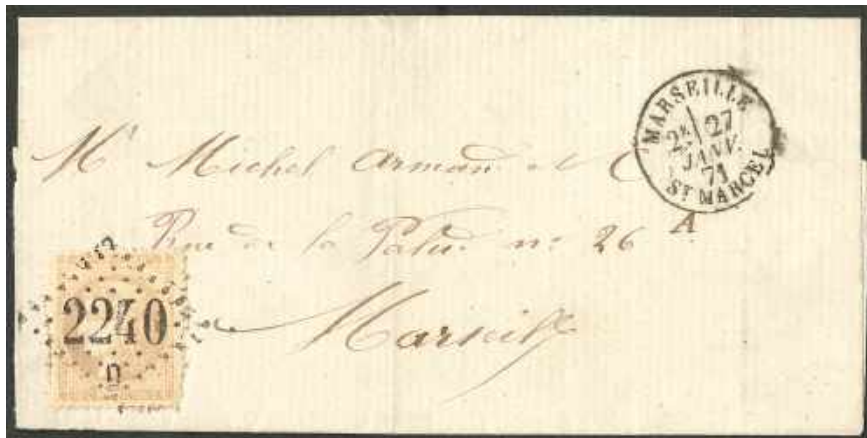 MARSEILLE
2E 27
JANV.
71
ST MARCEL
A
Mr Michel Armand et C
Rue de la Palud no 26
Marseille
2240
D